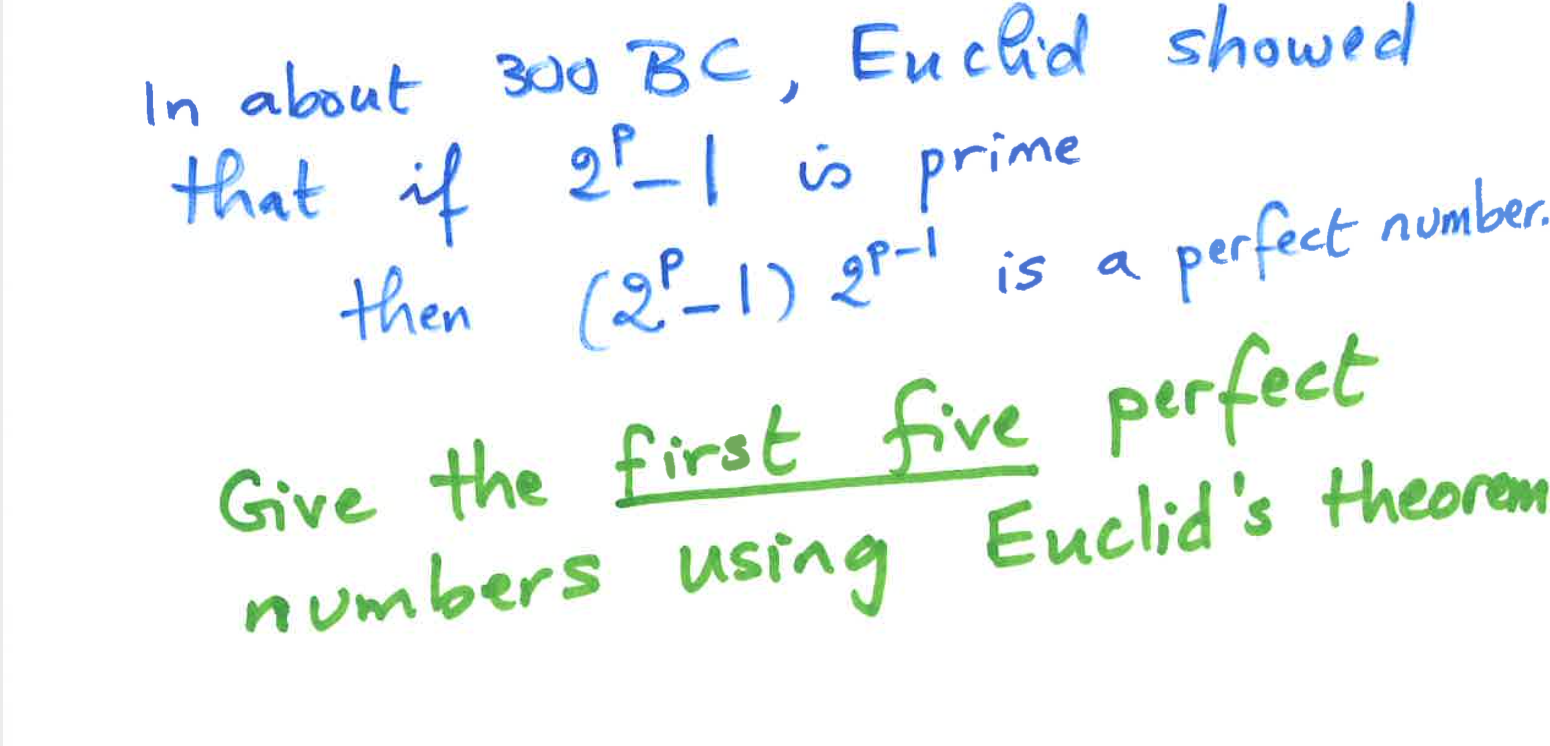 In about 300 BC, Euclid showed
that if 2ᵖ-1 is prime
then (2ᵖ-1) 2ᵖ⁻¹ is a perfect number.
Give the first five perfect
numbers using Euclid's theorem